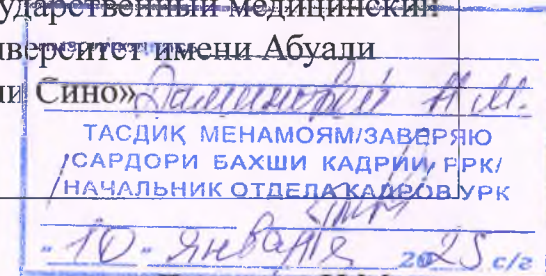 ударственный медицинский
иверситет имени Абуали
ни Сино»
Н. М.
ТАСДИҚ МЕНАМОЯМ/ЗАВЕРЯЮ
/САРДОРИ БАХШИ КАДРИИ РРК/
/НАЧАЛЬНИК ОТДЕЛА КАДРОВ УРК
"10" января 2025 с/г